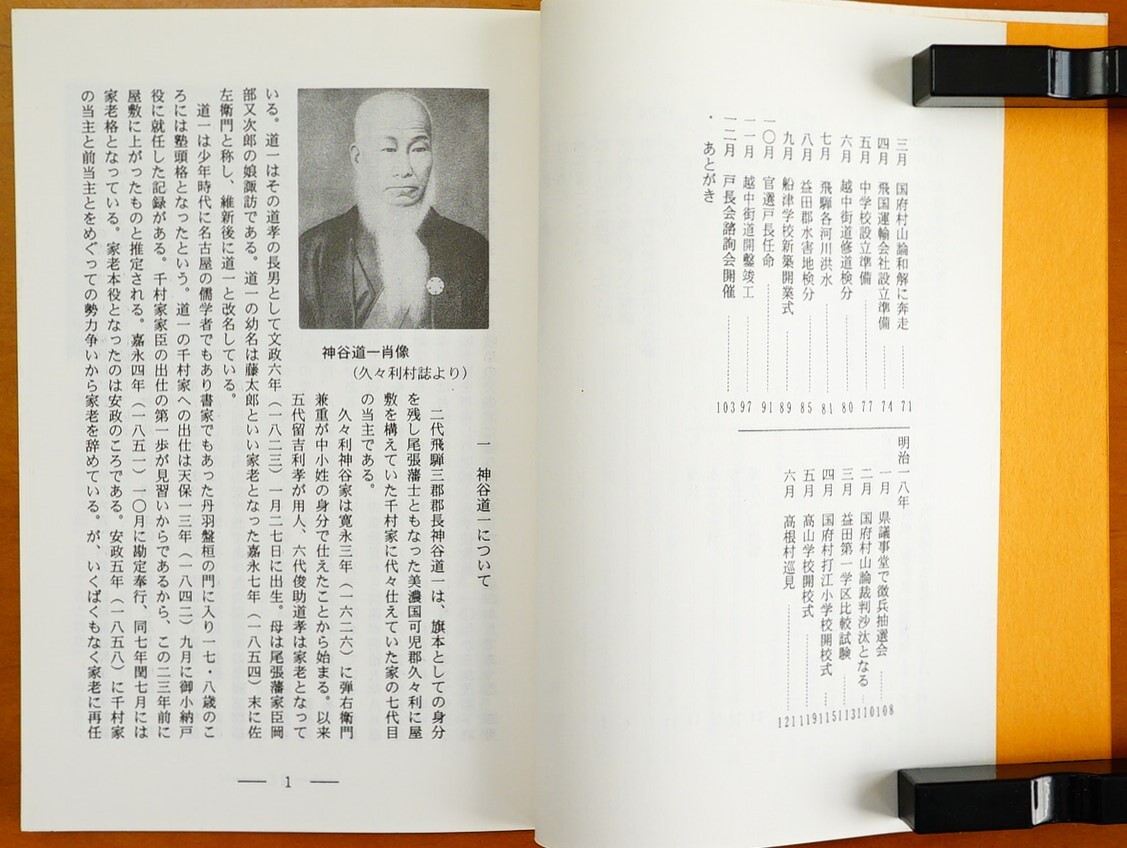 三月　国府村山論和解に奔走………71
四月　飛国運輸会社設立準備………74
五月　中学校設立準備………77
六月　越中街道修道検分………80
七月　飛騨各河川洪水………81
八月　益田郡水害地検分………85
九月　船津学校新築開業式………89
一〇月　官選戸長任命………91
一一月　越中街道開鑿竣工………97
一二月　戸長会諮詢会開催………103
・あとがき
明治一八年
一月　県議事堂で徴兵抽選会………108
二月　国府村山論裁判沙汰となる………110
三月　益田第一学区比較試験………113
四月　国府村打江小学校開校式………115
五月　高山学校開校式………119
六月　高根村巡見………121
一　神谷道一について
二代飛騨三郡郡長神谷道一は、旗本としての身分
を残し尾張藩士ともなった美濃国可児郡久々利に屋
敷を構えていた千村家に代々仕えていた家の七代目
の当主である。
久々利神谷家は寛永三年（一六二六）に弾右衛門
兼重が中小姓の身分で仕えたことから始まる。以来
五代留吉利孝が用人、六代俊助道孝は家老となって
神谷道一肖像
（久々利村誌より）
いる。道一はその道孝の長男として文政六年（一八二三）一月二七日に出生。母は尾張藩家臣岡
部又次郎の娘諏訪である。道一の幼名は藤太郎といい家老となった嘉永七年（一八五四）末に佐
左衛門と称し、維新後に道一と改名している。
道一は少年時代に名古屋の儒学者でもあり書家でもあった丹羽盤桓の門に入り一七・八歳のこ
ろには塾頭格となったという。道一の千村家への出仕は天保一三年（一八四二）九月に御小納戸
役に就任した記録がある。千村家家臣の出仕の第一歩が見習いからであるから、この二三年前に
屋敷に上がったものと推定される。嘉永四年（一八五一）一〇月に勘定奉行、同七年閏七月には
家老格となっている。家老本役となったのは安政のころである。安政五年（一八五八）に千村家
の当主と前当主とをめぐっての勢力争いから家老を辞めている。が、いくばくもなく家老に再任
― 1 ―